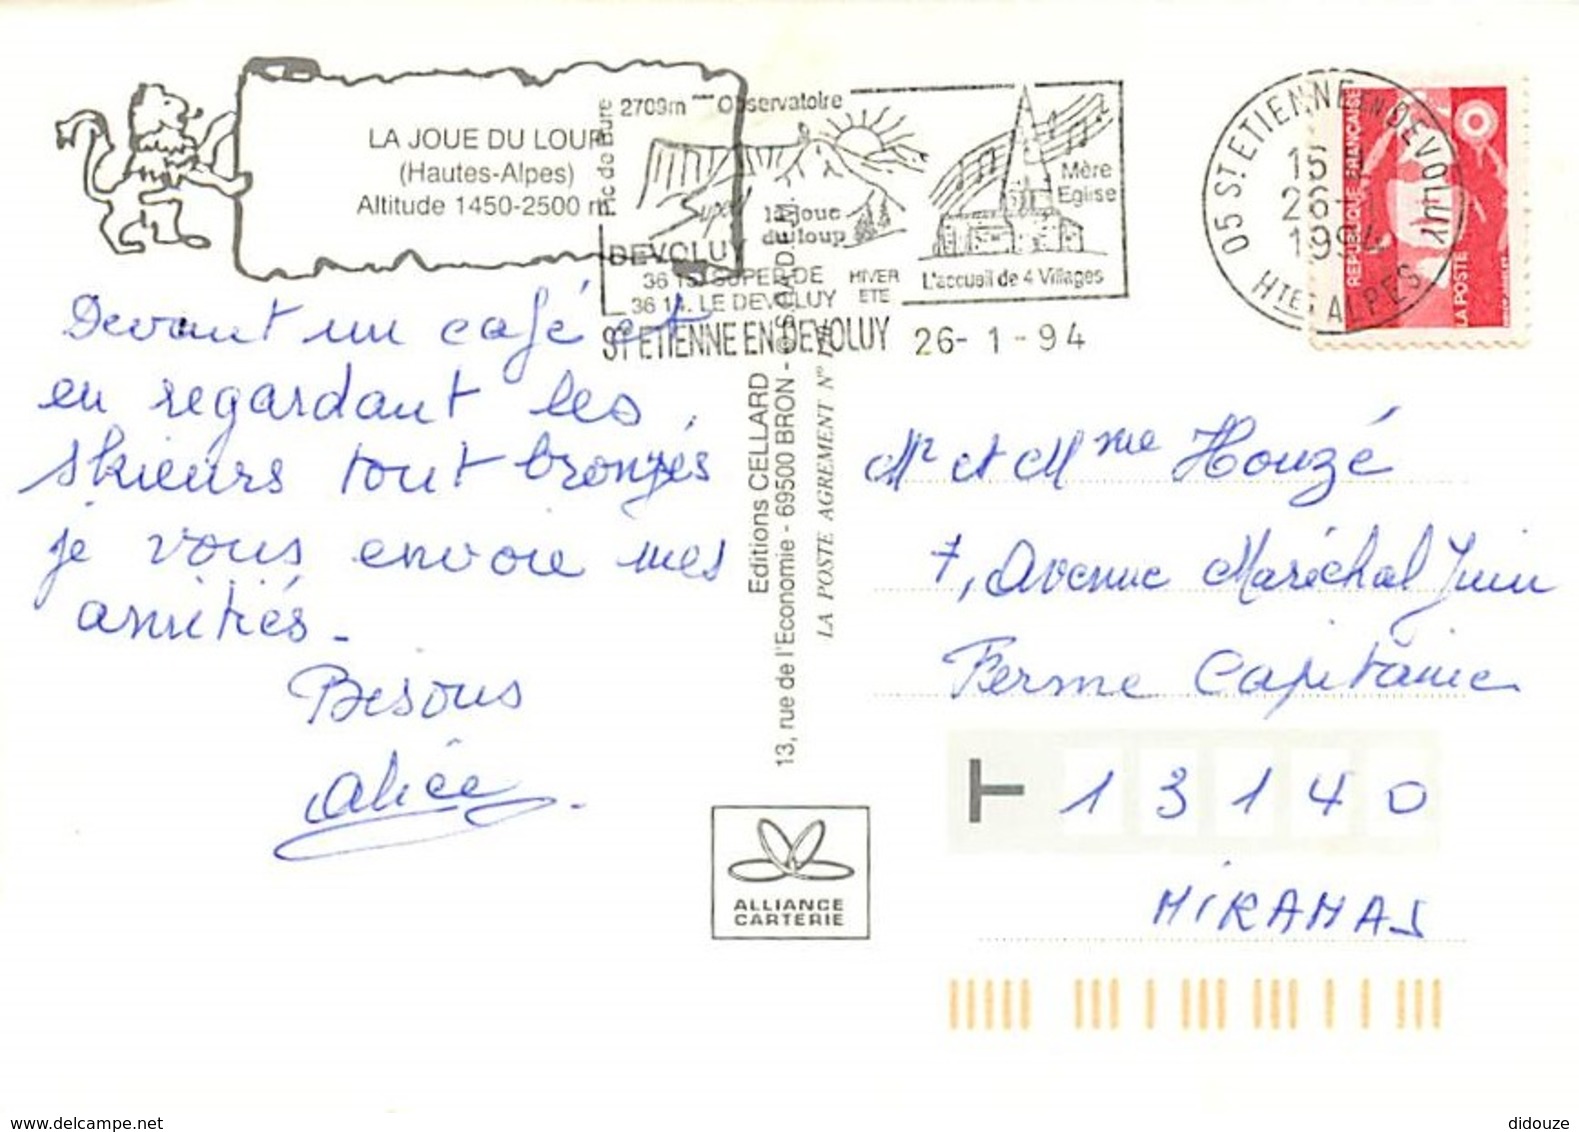 LA JOUE DU LOUP
(Hautes-Alpes)
Altitude 1450-2500 m
Pic de Bure
2709m Observatoire
Super
DEVOLUY
la joue
du loup
Mère
Eglise
36 15. SUPER DE
36 14. LE DEVOLUY
HIVER
ETE
L'accueil de 4 Villages
ST ETIENNE EN DEVOLUY 26-1-94
05 ST ETIENNE EN DEVOLUY
15
26-
1994
HTES ALPES
REPUBLIQUE FRANÇAISE
LA POSTE
Devant un café et
en regardant les
skieurs tout bronzés
je vous envoie mes
amitiés.
Bisous
Alice
Editions CELLARD
13, rue de l'Economie - 69500 BRON -
LA POSTE AGREMENT N°
ALLIANCE
CARTERIE
Mr et Mme Houzé
7, Avenue Maréchal Juin
Ferme Capitaine
13140
MIRAMAS
www.delcampe.net
didouze